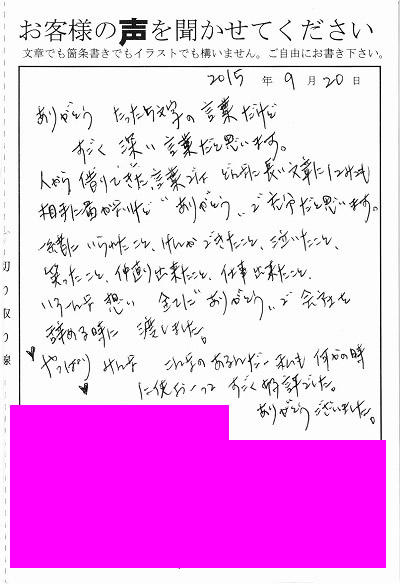 お客様の声を聞かせてください
文章でも箇条書きでもイラストでも構いません。ご自由にお書き下さい。
2015 年 9 月 20 日
ありがとう たった5文字の言葉だけど
すごく深い言葉だと思います。
人から借りてきた言葉では どんなに長い文章にしても
相手に届かないけど "ありがとう" で充分だと思います。
一緒に いられたこと、けんかできたこと、泣いたこと、
笑ったこと、仲直り出来たこと、仕事出来たこと、
いろんな想い 全てに"ありがとう"で会社を
辞める時に 渡しました。
やっぱり みんな こんなのあるんだー 私も何かの時
に使おーって すごく好評でした。
ありがとうございました。
切り取り線